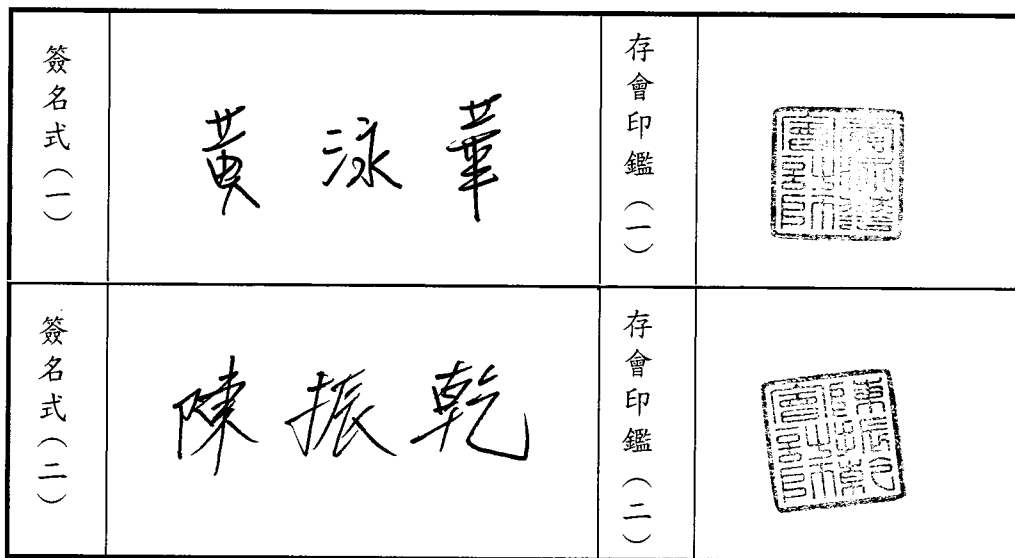 簽名式（一）
黃泳華
存會印鑑（一）
簽名式（二）
陳振乾
存會印鑑（二）